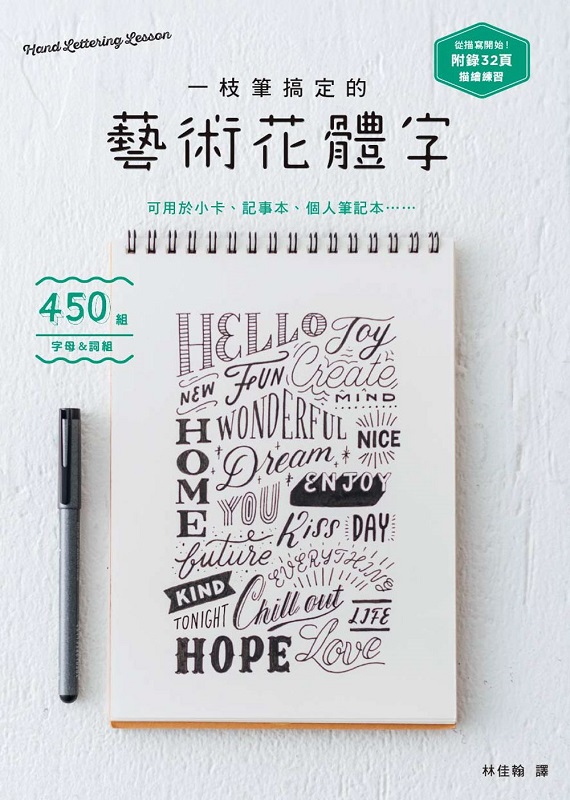 Hand Lettering Lesson
從描寫開始！
附錄32頁
描繪練習
一枝筆搞定的
藝術花體字
可用於小卡、記事本、個人筆記本……
450組
字母＆詞組
HELLO Joy
NEW FUN Create
MIND
HOME
WONDERFUL
NICE
Dream
ENJOY
YOU
Kiss DAY
future
EVERYTHING
KIND
TONIGHT
Chill out
LIFE
HOPE Love
林佳翰 譯